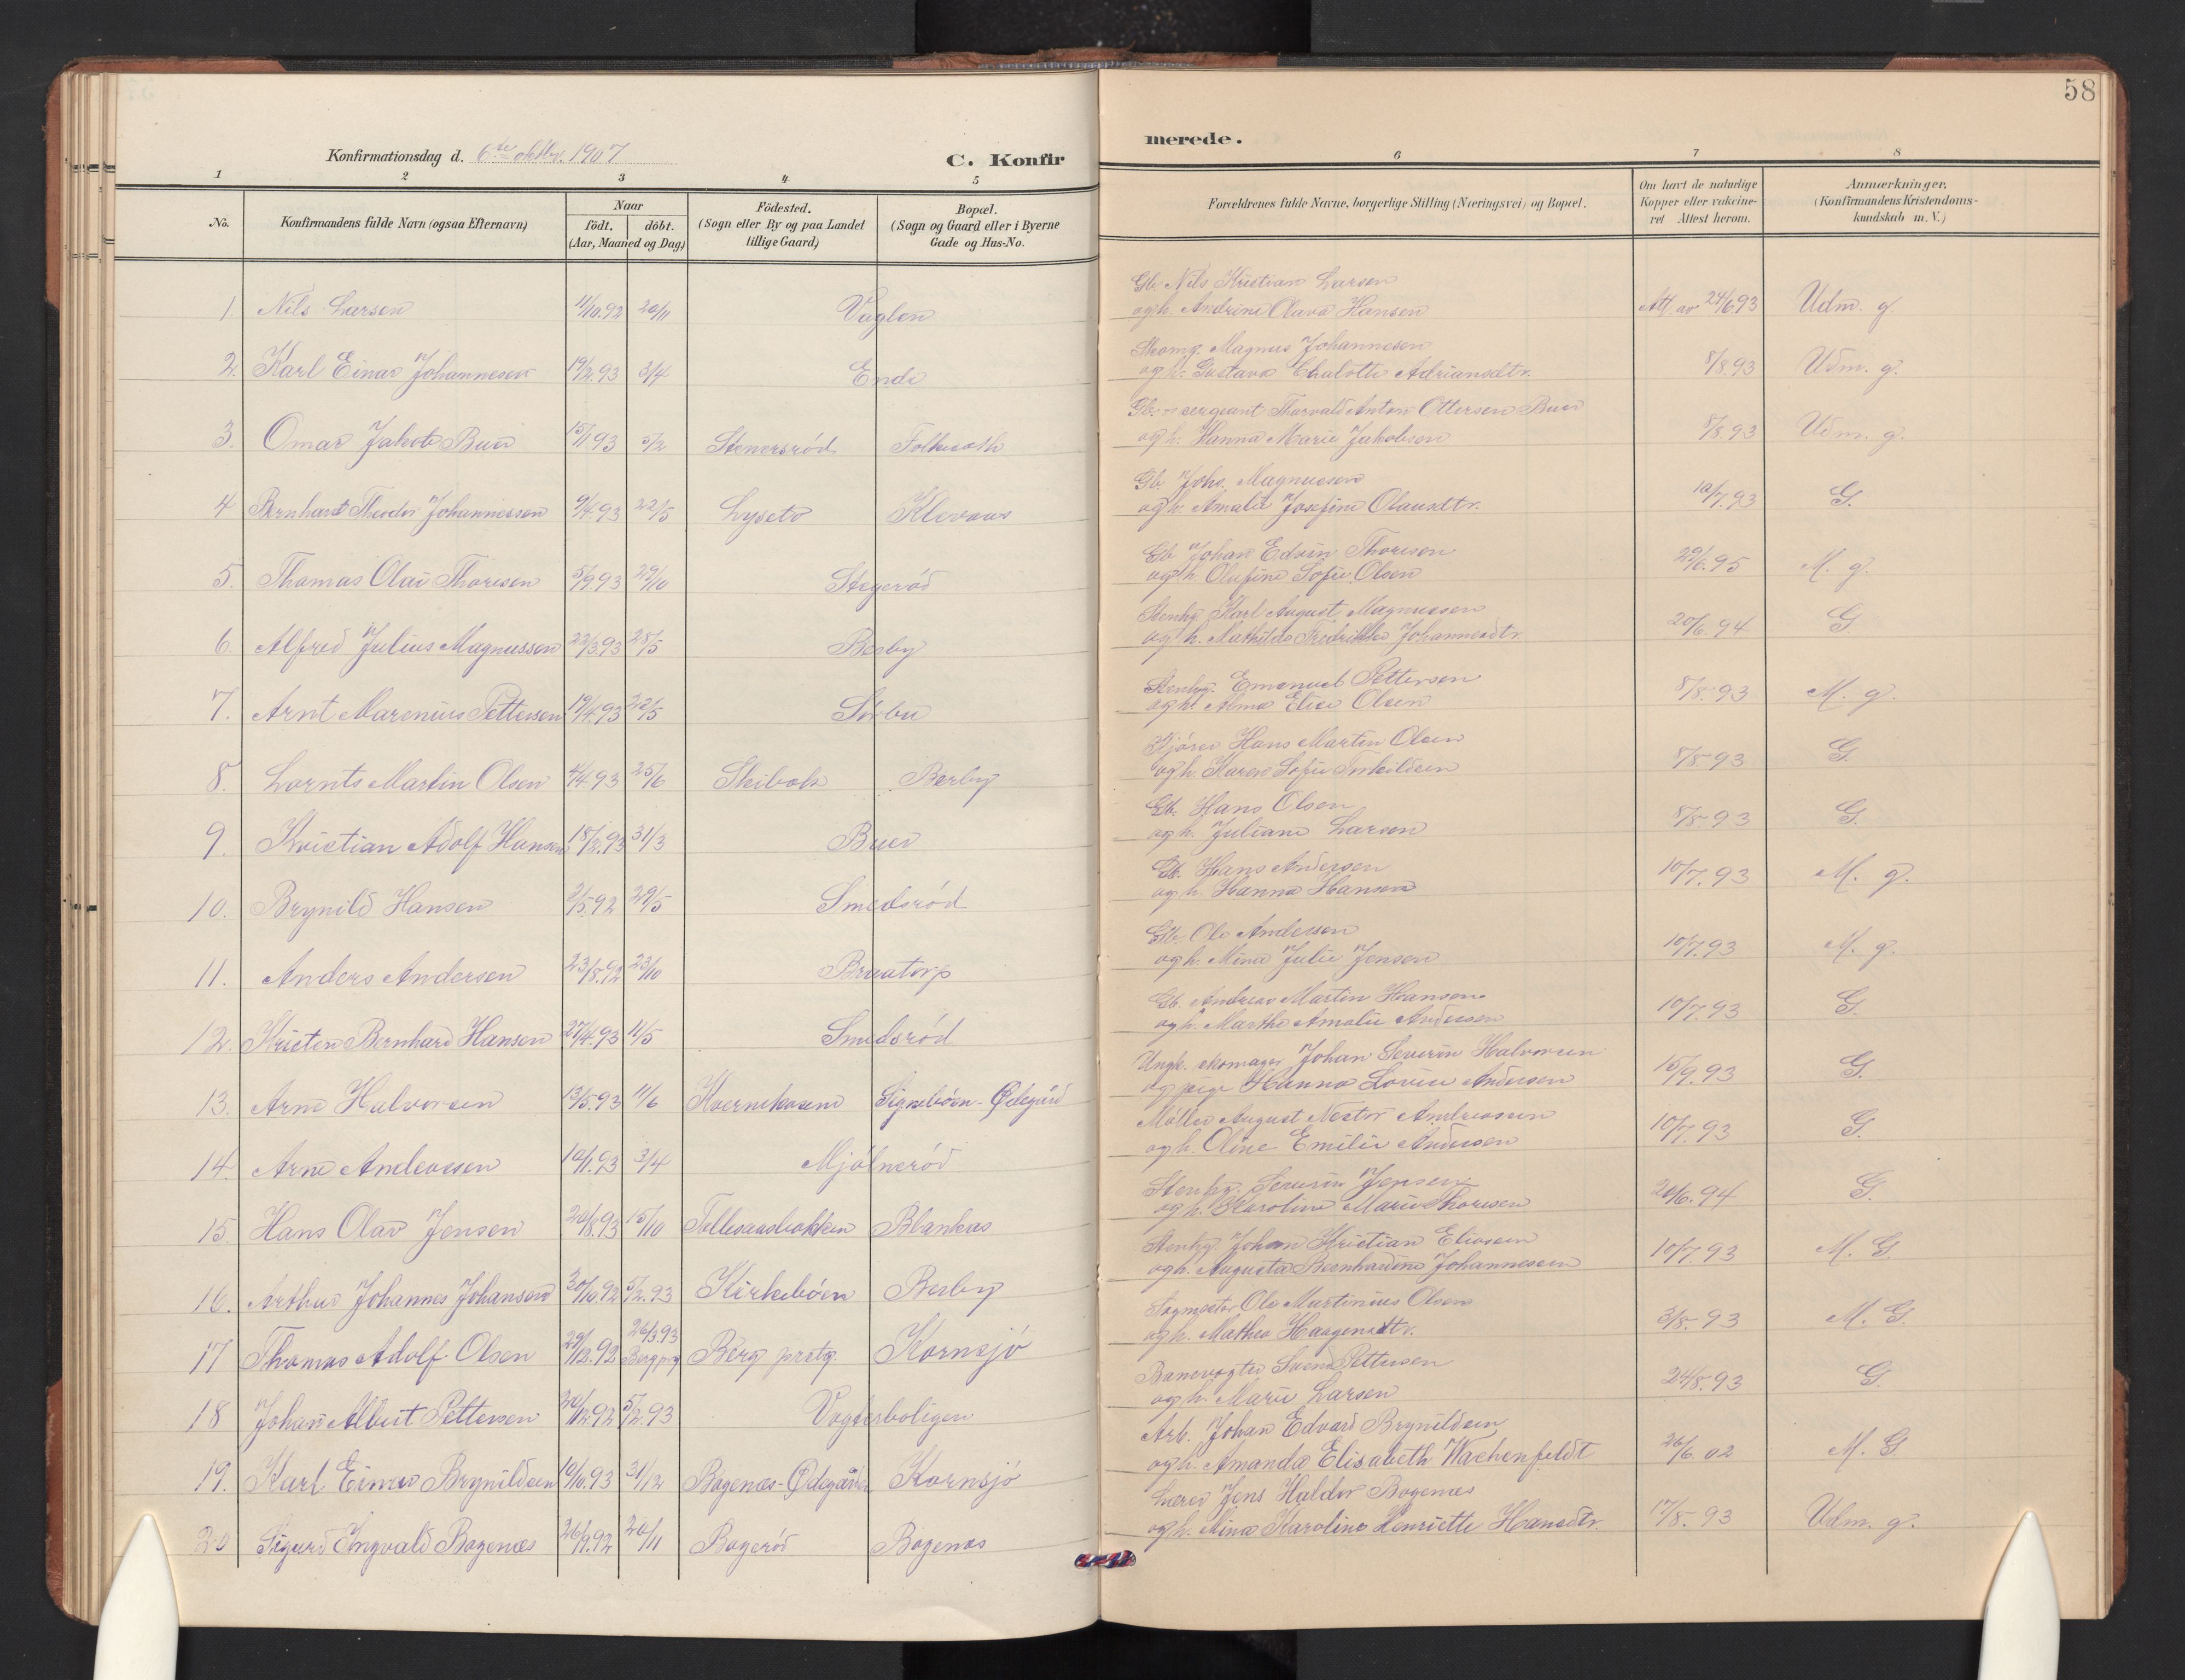 58
Konfirmationsdag d. 6te oktbr. 1907
C. Konfir
merede.
1 2 3 4 5 6 7 8
No.
Konfirmandens fulde Navn (ogsaa Efternavn)
Naar
födt. döbt.
(Aar, Maaned og Dag)
Födested.
(Sogn eller By og paa Landet
tillige Gaard)
Bopæl.
(Sogn og Gaard eller i Byerne
Gade og Hus-No.
Forældrenes fulde Navne, borgerlige Stilling (Næringsvei) og Bopæl.
Om havt de naturlige
Kopper eller vakcine-
ret Attest herom.
Anmærkninger.
(Konfirmandens Kristendoms-
kundskab m. V.)
1 Nils Larsen 11/10.92 20/11 Vaglen
Gb. Nils Kristian Larsen
og h. Andrine Olava Hansen
Att. av 24/6 93 Udm. g.
2. Karl Einar Johannesen 19/2.93 3/4 Ende
Skomg. Magnus Johannesen
og h. Gustava Chalotte Adriansdtr.
8/8.93 Udm. g.
3. Omar Jakob Buer 15/1 93 5/2 Stenersröd
Gb. sergeant Thorvald Anton Ottersen Buer
og h. Hanna Marie Jakobsen
8/8.93 Udm. g.
4 Bernhard Theodor Johannessen 9/4.93 22/5 Lyseto Klevaas
Gb. Johs. Magnussen
og h. Amalie Josefine Olausdtr.
10/7.93 G.
5. Thomas Olai Thoresen 5/9.93 29/10 Stegeröd
Gb. Johan Edvin Thoresen
og h. Olufine Sofie Olsen
29/6.95 M. g.
6. Alfred Julius Magnussen 22/3.93 28/5 Berby
Stenhg. Karl August Magnussen
og h. Mathilde Fredrikke Johannesdtr.
20/6.94 G
7. Arnt Marenius Pettersen 19/4.93 22/5 Sörbu
Stenhg. Emanuel Pettersen
og h. Alma Elise Olsen
8/8.93 M. g.
8. Lornts Martin Olsen 4/4.93 25/6 Skibak Berby
Kjörer Hans Martin Olsen
og h. Karen Sofie
8/8 93 G.
9. Kristian Adolf Hansen 18/2.93 31/3 Buer
Gb. Hans Olsen
og h. Juliane Larsen
8/8 93 G.
10. Brynild Hansen 2/5.92 29/5 Smedsröd
Gb. Hans Andersen
og h. Hanna Hansen
10/7.93 M. g.
11. Anders Andersen 23/8.92 23/10 Bruatorp
Gb. Ole Andersen
og h. Mina Julie Jensen
10/7.93 M. g.
12. Kristen Bernhard Hansen 27/4.93 11/5 Smedsröd
Gb. Andreas Martin Hansen
og h. Marthe Amalie Andersen
10/7.93 G.
13. Arne Halvorsen 13/5.93 11/6 Signebøen-Ødegård
Ungk. skomager Johan Severin Halvorsen
og pige Hanna Lovise Andersen
15/9.93 G.
14. Arne Andreassen 10/1.93 3/4 Mjölneröd
Möller August Nestor Andreassen
og h. Oline Emilie Andersen
10/7.93 G.
15. Hans Olav Jensen 20/8.93 15/10 Blankas
Stenhg. Severin Jensen
og h. Karoline Marie Thoresen
20/6.94 G.
16. Arthur Johannes Johansen 30/10.92 5/2.93 Kirkebøen Berby
Stenhg. Johan Kristian Eliasen
og h. Augusta Bernhardine Johannesen
10/7.93 M. G
17 Thomas Adolf Olsen 29/12.92 26/3.93 Berg prg Berg prstg. Kornsjö
Sagmester Ole Martinius Olsen
og h. Mathea Haagensdtr.
3/8.93 M. G.
18 Johan Albert Pettersen 20/12.92 5/2.93 Vogterboligen
Banevogter Svend Pettersen
og h. Marie Larsen
24/8.93 G.
19. Karl Einar Brynildsen 10/10.93 31/12 Bogenæs-Ødegården Kornsjö
Arb. Johan Edvard Brynildsen
og h. Amanda Elisabeth Wachenfeldt
26/6.02 M. G
20 Sigurd Ingvald Bogenæs 26/9.92 20/11 Bogeröd Bogenæs
Lærer Jens Haldor Bogenæs
og h. Mina Karoline Henriette Hansdtr.
17/8.93 Udm. g.